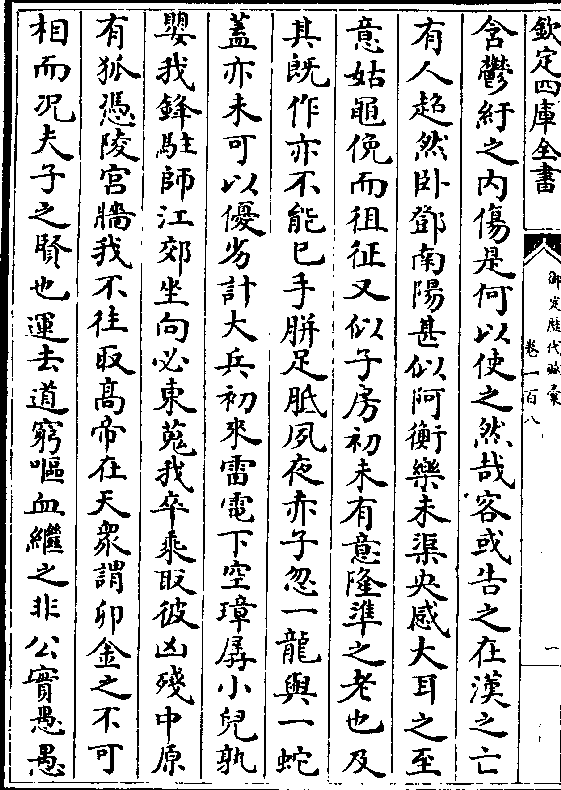 欽定四庫全書
御定歷代賦彙
卷一百八
一
含鬱紆之内傷是何以使之然哉客或告之在漢之亡
有人超然卧鄧南陽甚似阿衡樂未渠央感大耳之至
意姑黽俛而徂征又似子房初未有意隆準之老也及
其既作亦不能已手胼足胝夙夜赤子忽一龍與一蛇
蓋亦未可以優劣計大兵初來雷電下空璋孱小兒孰
嬰我鋒駐師江郊坐向必東蒐我卒乘取彼凶殘中原
有狐憑陵宫牆我不往取髙帝在天衆謂卯金之不可
相而况夫子之賢也運去道窮嘔血繼之非公實愚愚